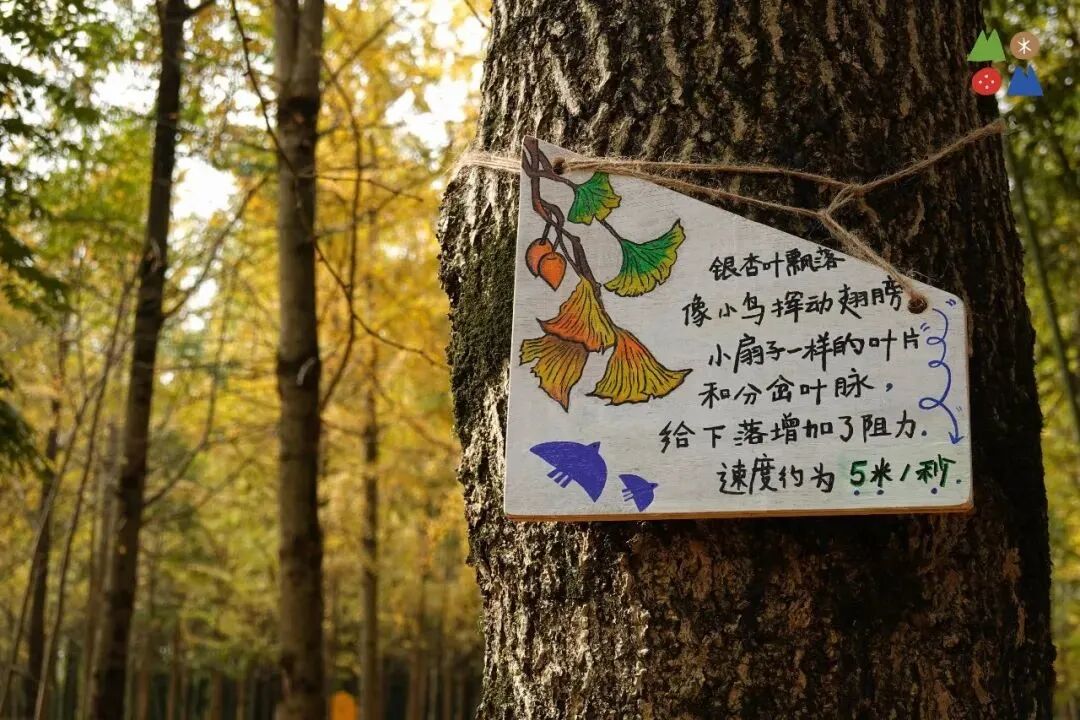 银杏叶飘落
像小鸟挥动翅膀
小扇子一样的叶片
和分岔叶脉，
给下落增加了阻力.
速度约为 5米/秒.